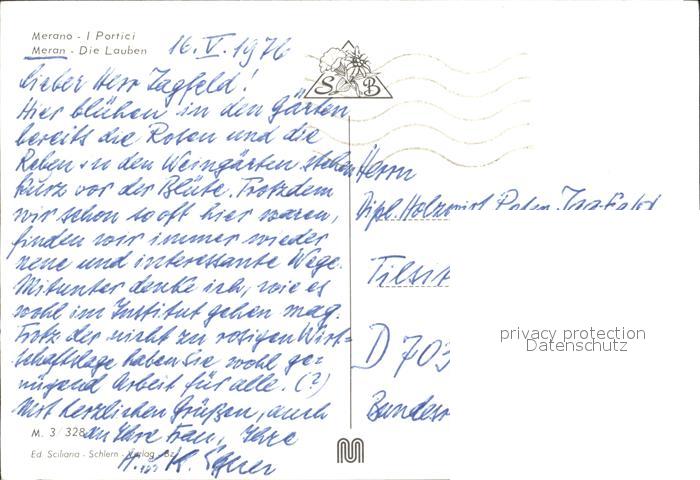 Merano - I Portici
Meran - Die Lauben
16. V. 1976
S B
Lieber Herr Jagfeld!
Hier blühen in den Gärten
bereits die Rosen und die
Reben in den Weingärten stehen
kurz vor der Blüte. Trotzdem
wir schon so oft hier waren,
finden wir immer wieder
neue und interessante Wege.
Mitunter denke ich, wie es
wohl im Institut gehen mag.
Trotz der nicht zu rosigen Wirt-
schaftslage haben Sie wohl ge-
nügend Arbeit für alle. (?)
Mit herzlichen Grüßen, auch
an Ihre Frau, Ihre
H. K.
Herrn
Dipl. Holzwirt
Tilsit
D 703
Bundesr
privacy protection
Datenschutz
M. 3/328
Ed. Sciliana - Schlern - Verlag - Bz